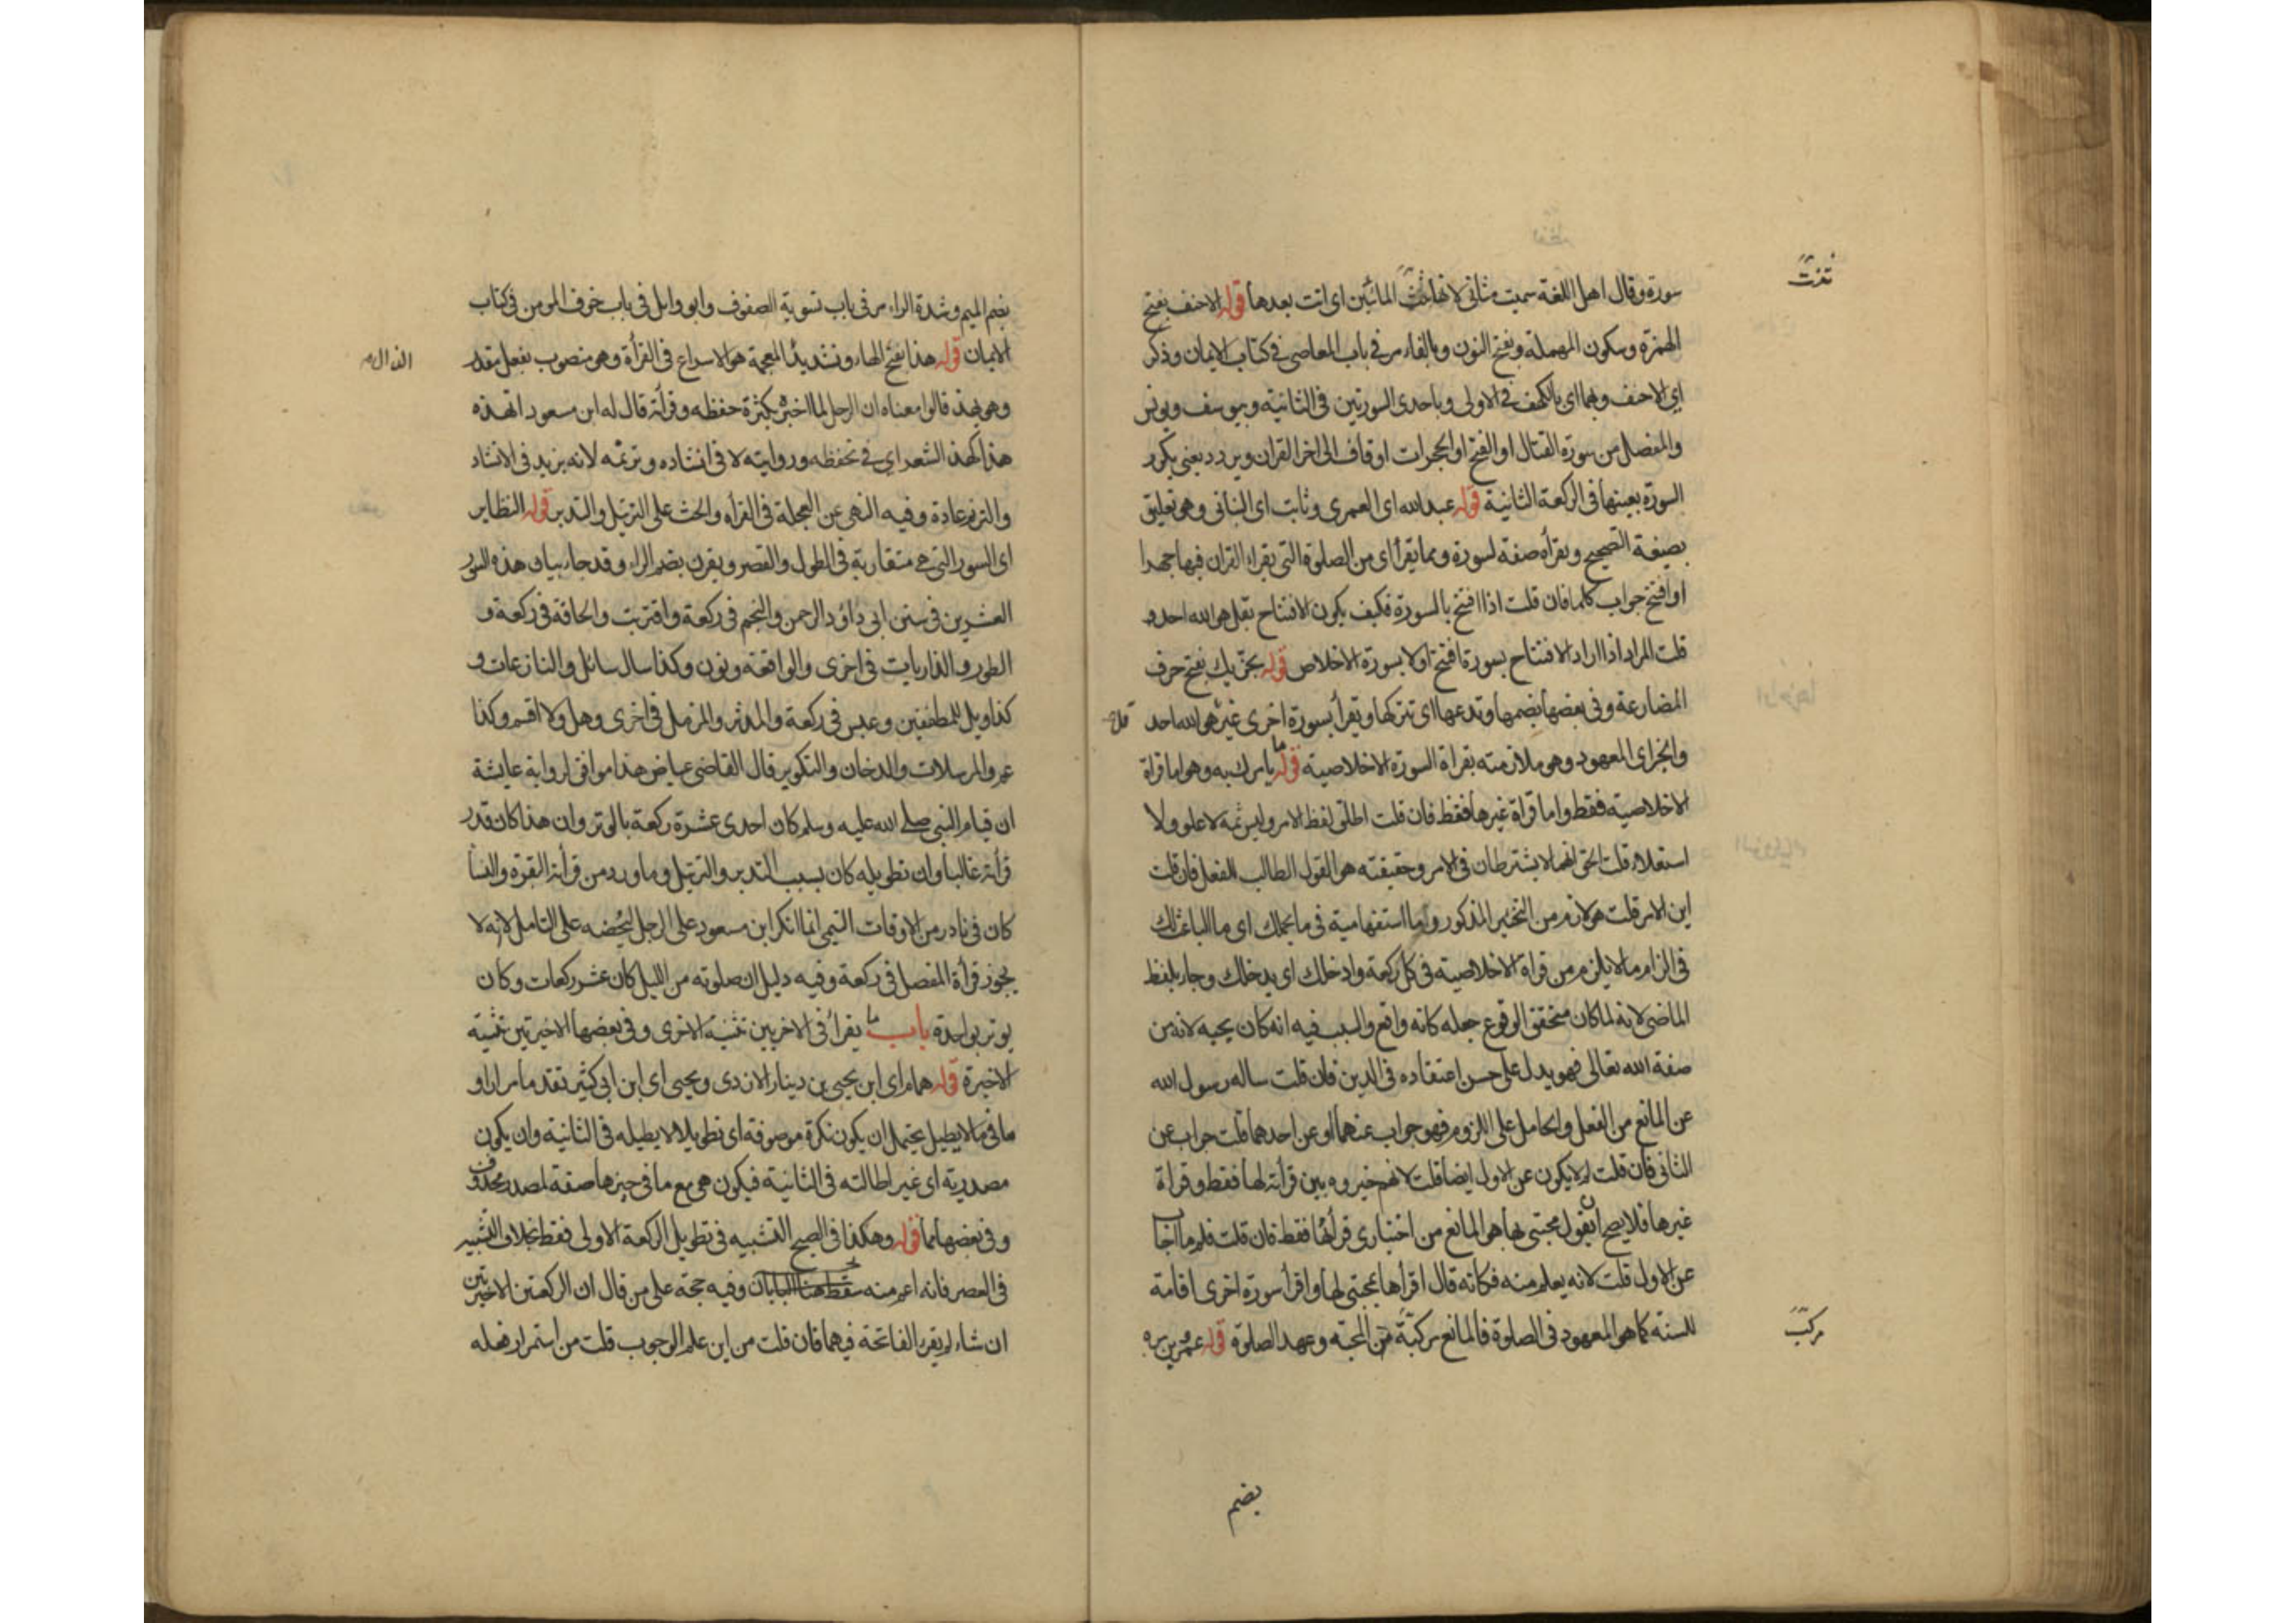 سورة وقال اهل اللغة سميت مثاني لانها ثنت المائتين اى اتت بعدها قوله الاحنف بفتح
الهمزة وسكون المهملة وبفتح النون وبالفاء مر في باب المعاصى فى كتاب الايمان وذكر
اي الاحنف وبهما اى بالكهف في الاولى وباحدى السورتين فى الثانية وبيوسف ويونس
والمفصل من سورة القتال او الفتح او الحجرات او قاف الى اخر القران ويردد يعنى يكرر
السورة بعينها فى الركعة الثانية قوله عبد الله اى العمرى وثابت اى البنانى وهو تعليق
بصيغة التصحيح ويقرأه صفة لسورة ومما يقرأ اى من الصلوة التى يقراء القران فيها جهرا
او افتتح جواب كلما فان قلت اذا افتتح بالسورة فكيف يكون الافتتاح بقل هو الله احد و
قلت المراد اذا اراد الافتتاح بسورة افتتح اولا بسورة الاخلاص قوله يجزيك بفتح حرف
المضارعة وفى بعضها بضمها وتدعها اى تتركها وتقرأ بسورة اخرى غير هو الله احد
وانجزاى المعهود وهو ملازمته بقراة السورة الاخلاصية قوله يامرك به وهو اما قراة
الاخلاصية فقط واما قراة غيرها فقط فان قلت اطلق لفظ الامر وليس ثمه لا علو ولا
استعلاء قلت الحق انهما لا يشترطان فى الامر وحقيقته هو القول الطالب للفعل فان قلت
اين الامر قلت هو لازم من التخيير المذكور وما استفهامية فى ما يحملك اى ما الباعث لك
فى الزام ما لا يلزم من قراة الاخلاصية فى كل ركعة وادخلك اى يدخلك وجاء بلفظ
الماضى لانه لما كان متحقق الوقوع جعله كانه واقع والسبب فيه انه كان يحبه لانه من
صفة الله تعالى فهو يدل على حسن اعتقاده فى الدين فان قلت ساله رسول الله
عن المانع من الفعل والحامل على اللزوم فهو جواب عنهما او عن احدهما قلت جواب عن
الثانى فان قلت لم لا يكون عن الاول ايضا قلت لانهم خيروه بين قرأته لها فقط وقراة
غيرها فلا يصح ان يقول محبتى لها هو المانع من اختيارى قرأتها فقط فان قلت فلم ما اجاب
عن الاول قلت لانه يعلم منه فكانه قال اقرأها لمحبتى لها واقرأ سورة اخرى اقامة
للسنة كما هو المعهود فى الصلوة فالمانع مركبة من المحبة وعهد الصلوة قوله عمرو بن مره
ثنت
قل
مركب
بضم
بضم الميم وشدة الراء مر فى باب تسوية الصفوف وابو وايل فى باب خوف المومن فى كتاب
الايمان قوله هذا بفتح الهاء وتشديد المعجمة هو الاسراع فى القرأة وهو منصوب بفعل مقدر
وهو يهذ قالوا معناه ان الرجل لما اخبره بكثرة حفظه وقرأته قال له ابن مسعود اتهذه
هذا كهذ الشعر اي فى تحفظه وروايته لا فى انشاده وترنمه لانه يزيد فى الانشاد
والترنم عادة وفيه النهى عن العجلة فى القرأه والحث على الترتيل والتدبر قوله النظاير
اى السور التى هى متقاربة فى الطول والقصر ويقرن بضم الراء وقد جاء بيان هذه السور
العشرين فى سنن ابى داؤد الرحمن والنجم فى ركعة واقتربت والحاقة فى ركعة و
الطور والذاريات فى اخرى والواقعة ونون وكذا سال سائل والنازعات و
كذا ويل للمطففين وعبس فى ركعة والمدثر والمزمل فى اخرى وهل ولا اقسم وكذا
عم والمرسلات والدخان والتكوير قال القاضى عياض هذا موافق لرواية عايشة
ان قيام النبى صلى الله عليه وسلم كان احدى عشرة ركعة بالوتر وان هذا كان قدر
قرأته غالبا وان تطويله كان بسبب التدبر والترتيل وما ورد من قرأته البقرة والنسا
كان فى نادر من الاوقات التيمى انما انكر ابن مسعود على الرجل ليحضه على التامل لانه لا
يجوز قرأة المفصل فى ركعة وفيه دليل ان صلوته من الليل كان عشر ركعات وكان
يوتر بواحدة باب ما يقرأ فى الاخريين تثنية الاخرى وفى بعضها الاخيرتين تثنية
الاخيرة قوله همام اى ابن يحيى بن دينار الازدى ويحيى اى ابن ابى كثير تقدما مرارا و
ما فى ما لا يطيل يحتمل ان يكون نكرة موصوفة اى تطويلا لا يطيله فى الثانية وان يكون
مصدرية اى غير اطالته فى الثانية فيكون هى مع ما فى حيزها صفة لمصدر محذوف
وفى بعضها مما قوله وهكذا فى الصبح التشبيه فى تطويل الركعة الاولى فقط بخلاف التشبيه
فى العصر فانه اعم منه سقط هنا البابان وفيه حجة على من قال ان الركعتين الاخيرتين
ان شاء لم يقرء الفاتحة فيهما فان قلت من اين علم الوجوب قلت من استمرار فعله
الذال